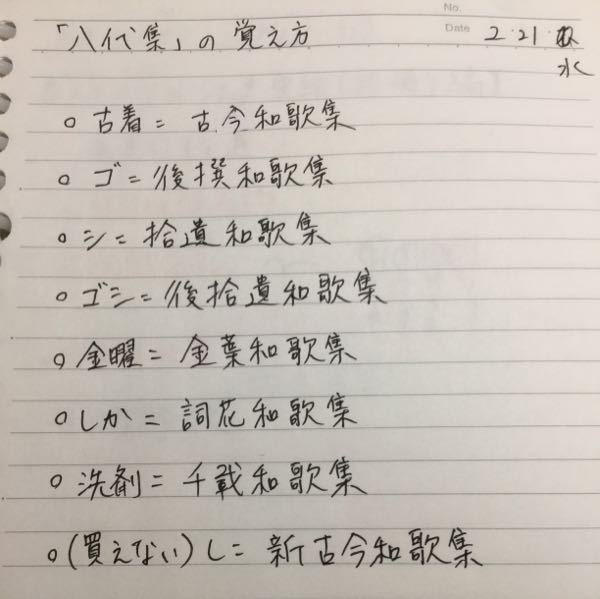 「八代集」の覚え方
No.
Date 2・21・
水
○古着＝古今和歌集
○ゴ＝後撰和歌集
○シ＝拾遺和歌集
○ゴシ＝後拾遺和歌集
○金曜＝金葉和歌集
○しか＝詞花和歌集
○洗剤＝千載和歌集
○(買えない)し＝新古今和歌集